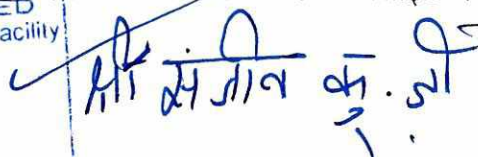 ED
acility
श्री संजीव कु. जी